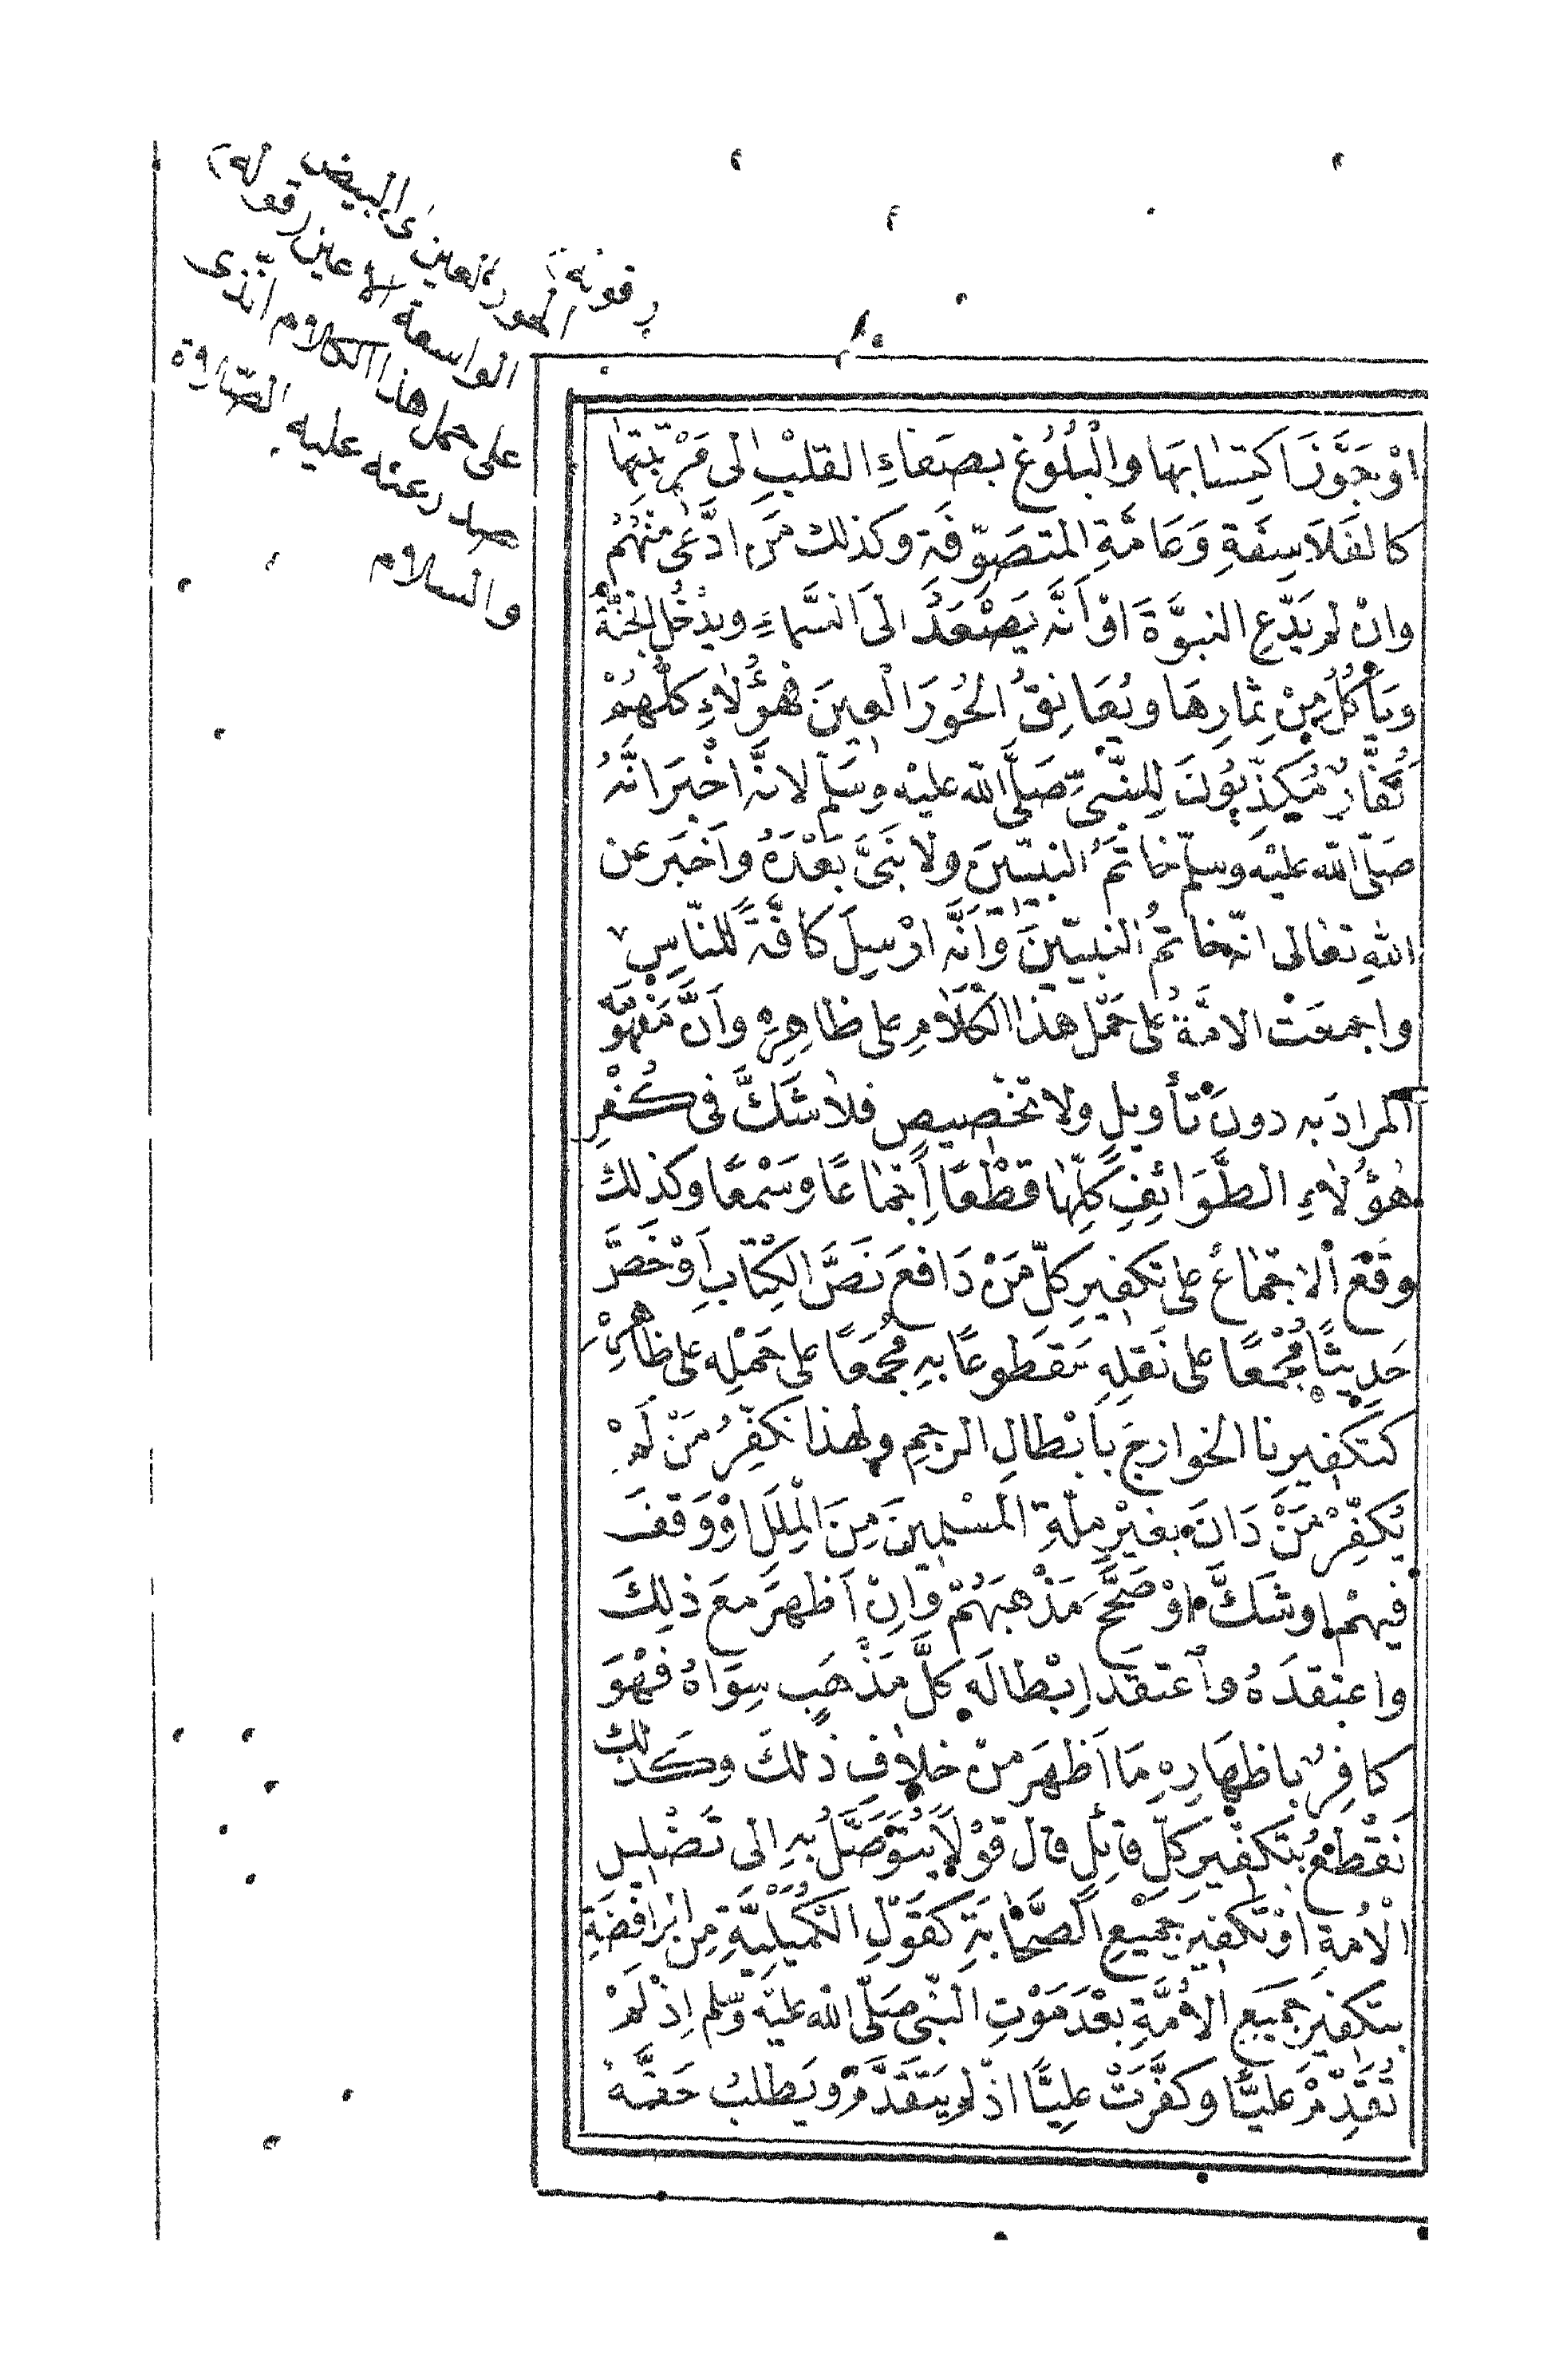 اوْ جَوَّزَ اكتِسَابهَا والْبُلُوغ بصَفاءِ القلْبِ الى مَرْتبتِهَا
كالفَلاسِفَةِ وَعَامَّةِ المتصَوّفَة وكذلك مَن ادَّعَى منْهُمْ
وانْ لم يَدّعِ النبوَّةَ اوْ أنَّه يَصْعَدُ الى السَّماءِ ويدْخُل الجَنَّةَ
وَيَأكُلُ مِنْ ثِمارِهَا ويُعَانِقُ الحُورَ العِينَ فهؤُلاءِ كلُّهُمْ
كُفَّارٌ مُكَذِّبُونَ لِلنَّبىِّ صَلَّى الله عليْه وسَلّم لانَّه اخْبَرَ انَّهُ
صَلّى الله عليْه وسلّم خاتَمُ النبيّينَ ولا نَبىَّ بَعْدَهُ واَخبَر عن
اللهِ تعَالى انّه خاتمُ النبيّينَ وَاَنَّه ارْسِلَ كافَّةً للنّاسِ
واجمعَتْ الامَّةُ على حَمْل هذا الكَلامِ على ظاهِرِهِ واَنَّ مَفْهومَه
المرادَ به دونَ تأويلٍ ولا تخْصِيصٍ فلا شَكَّ فى كُفْرِ
هؤُلاءِ الطَّوَائِفِ كلِّهَا قطْعًا اِجمَاعًا وَسَمْعًا وكذلك
وقَعَ الاجمَاعُ على تكفِيرِ كلّ مَنْ دَافعَ نَصَّ الكِتَابِ اَوْ خَصَّ
حَدِيثًا مُجْمَعًا على نَقلِهِ مَقطوعًا بهِ مُجمَعًا على حَمْلِه على ظاهِرِهْ
كتكفِيرِنا الخوارِجَ بابْطالِ الرجمِ ولهذا نكفِّرُ مَنْ لَمْ
يُكفِّرْ مَنْ دَانَ بغيْرِ مِلّةِ المسْلِمينَ مِنَ المِلَلِ اوْ وَقفَ
فيهْم او شَكَّ اوْ صَحَّحَ مَذْهبَهُمْ وَانْ اَظهَرَ مَعَ ذلِكَ
واعتقدَهُ واعتقَدَ اِبْطالَه كلَّ مَذْهَبٍ سِوَاهُ فهْوَ
كافِرٌ باظهَارِهِ مَا اَظهَرَ منْ خلافِ ذلكَ وكَذلك
نَقْطعُ بتَكفْيرِ كلّ قائلٍ قال قوْلًا يُتَوَصَّلُ بهِ الى تَضْلِيلِ
الْأمةِ اوْ تكفيرِ جميْعِ الصَّحَابَةِ كقَوْلِ الكُمَيْلِيَّةِ مِن الرَافضَةِ
بتكفيرِ جميَعِ الاُمَّةِ بعْدَ مَوْتِ النّبى صَلّى الله عليْه وسّلم اِذ لَمْ
تُقَدِّمْ عَليًّا وكفَّرَتْ عليًّا اذْ لم يَتَقَدَّمْ ويَطلبُ حَقَّهُ
على حمل هذا الكلام
والسلام